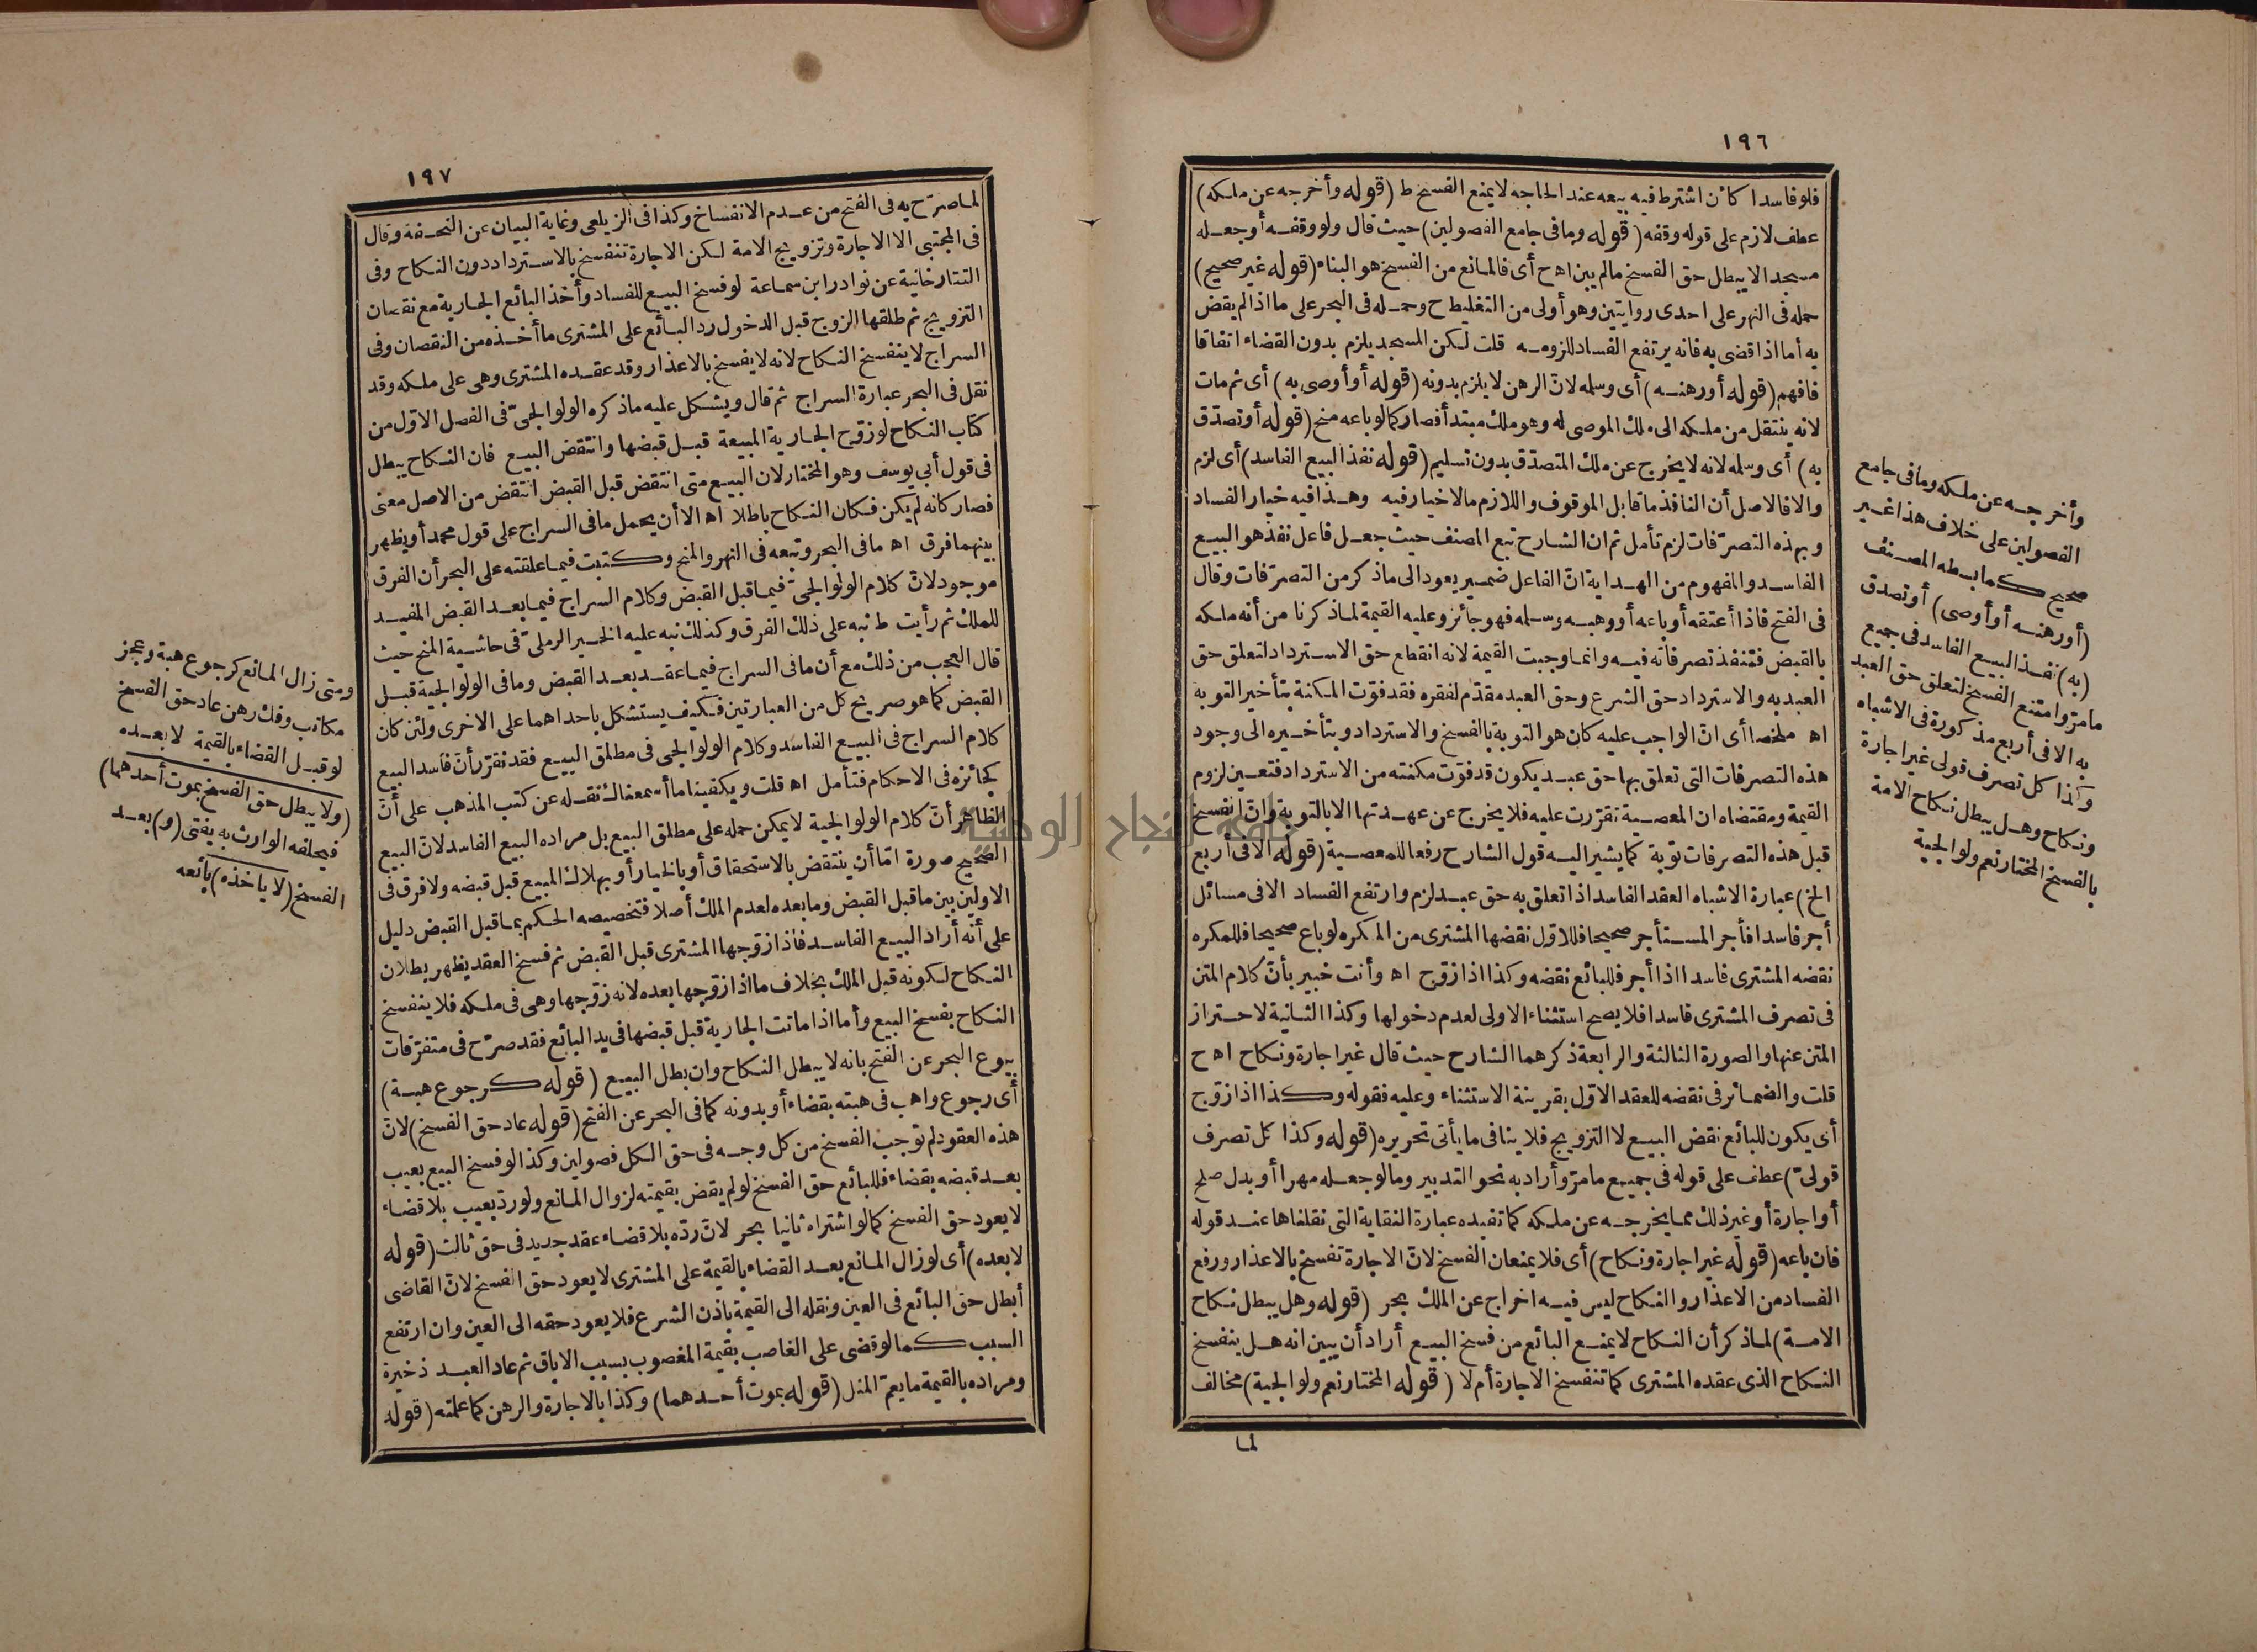 ١٩٦
فلو فاسدا كائن اشترط فيه بيعه عند الحاجه لا يمنع الفسخ ط (قوله وأخرجه عن ملكه)
عطف لازم على قوله وقفه (قوله وما فى جامع الفصولين) حيث قال ولو وقفه أو جعله
مسجدا لا يبطل حق الفسخ ما لم يبن اه ح أى فالمانع من الفسخ هو البناء (قوله غير صحيح)
حمله فى النهر على احدى روايتين وهو أولى من التغليط ح وحمله فى البحر على ما اذا لم يقض
به أما اذا قضى به فانه يرتفع الفساد للزومه قلت لكن المسجد يلزم بدون القضاء اتفاقا
فافهم (قوله أو رهنه) أى وسلمه لانّ الرهن لا يلزم بدونه (قوله أو أوصى به) أى ثم مات
لانه ينتقل من ملكه الى ملك الموصى له وهو ملك مبتدأ فصار كما لو باعه منح (قوله أو تصدّق
به) أى وسلمه لانه لا يخرج عن ملك المتصدّق بدون تسليم (قوله نفذ البيع الفاسد) أى لزم
والا فالاصل أن النافذ ما قابل الموقوف واللازم ما لا خيار فيه وهذا فيه خيار الفساد
وبهذه التصرّفات لزم تأمل ثم ان الشارح تبع المصنف حيث جعل فاعل نفذ هو البيع
الفاسد والمفهوم من الهداية انّ الفاعل ضمير يعود الى ما ذكر من التصرّفات وقال
فى الفتح فاذا أعتقه أو باعه أو وهبه وسلمه فهو جائز وعليه القيمة لما ذكرنا من أنه ملكه
بالقبض فتنفذ تصرفاته فيه وانما وجبت القيمة لانه انقطع حق الاسترداد لتعلق حق
العبد به والاسترداد حق الشرع وحق العبد مقدّم لفقره فقد فوّت المكنة بتأخير التوبه
اه ملخصا أى انّ الواجب عليه كان هو التوبة بالفسخ والاسترداد وبتأخيره الى وجود
هذه التصرفات التى تعلق بها حق عبد يكون قد فوّت مكنته من الاسترداد فتعين لزوم
القيمة ومقتضاه ان المعصية تقرّرت عليه فلا يخرج عن عهدتها الا بالتوبة وانّ الفسخ
قبل هذه التصرفات توبة كما يشير اليه قول الشارح رفعا للمعصية (قوله الا فى أربع
الخ) عبارة الاشباه العقد الفاسد اذا تعلق به حق عبد لزم وارتفع الفساد الا فى مسائل
أجر فاسدا فأجر المستأجر صحيحا فللاول نقضها المشترى من المكره لو باع صحيحا فللمكره
نقضه المشترى فاسدا اذا أجر فللبائع نقضه وكذا اذا زوّج اه وأنت خبير بأنّ كلام المتن
فى تصرف المشترى فاسدا فلا يصح استثناء الاولى لعدم دخولها وكذا الثانية لاحتراز
المتن عنها والصورة الثالثة والرابعة ذكرهما الشارح حيث قال غير اجارة ونكاح اه ح
قلت والضمائر فى نقضه للعقد الاوّل بقرينة الاستثناء وعليه فقوله وكذا اذا زوّج
أى يكون للبائع نقض البيع لا التزويج فلا ينافى ما يأتى تحريره (قوله وكذا كل تصرف
قولىّ) عطف على قوله فى جميع ما مرّ وأراد به نحو التدبير وما لو جعله مهرا أو بدل صلح
أو اجارة أو غير ذلك مما يخرجه عن ملكه كما تفيده عبارة النقاية التى نقلناها عند قوله
فان باعه (قوله غير اجارة ونكاح) أى فلا يمنعان الفسخ لانّ الاجارة تفسخ بالاعذار ورفع
الفساد من الاعذار والنكاح ليس فيه اخراج عن الملك بحر (قوله وهل يبطل نكاح
الامة) لما ذكر أن النكاح لا يمنع البائع من فسخ البيع أراد أن يبين انه هل ينفسخ
النكاح الذى عقده المشترى كما تنفسخ الاجارة أم لا (قوله المختار نعم ولوالجية) مخالف
لما
وأخرجه عن ملكه وما فى جامع
الفصولين على خلاف هذا غير
صحيح كما بسطه المصنف
(أو رهنه أو أوصى) أو تصدق
(به) نفذ البيع الفاسد فى جميع
ما مرّ وامتنع الفسخ لتعلق حق العبد
به الا فى أربع مذكورة فى الاشباه
وكذا كل تصرف قولى غير اجارة
ونكاح وهل يبطل نكاح الامة
بالفسخ المختار نعم ولوالجية
١٩٧
لما صرّح به فى الفتح من عدم الانفساخ وكذا فى الزيلعى وغاية البيان عن التحفة وقال
فى المجتبى الا الاجارة وتزويج الامة لكن الاجارة تنفسخ بالاسترداد دون النكاح وفى
التتارخانية عن نوادر ابن سماعة لو فسخ البيع للفساد وأخذ البائع الجارية مع نقصان
التزويج ثم طلقها الزوج قبل الدخول رد البائع على المشترى ما أخذه من النقصان وفى
السراج لا ينفسخ النكاح لانه لا يفسخ بالاعذار وقد عقده المشترى وهى على ملكه وقد
نقل فى البحر عبارة السراج ثم قال ويشكل عليه ما ذكره الولوالجىّ فى الفصل الاوّل من
كتاب النكاح لو زوّج الجارية المبيعة قبل قبضها وانتقض البيع فان النكاح يبطل
فى قول أبى يوسف وهو المختار لان البيع متى انتقض قبل القبض انتقض من الاصل معنى
فصار كانه لم يكن فكان النكاح باطلا اه الا أن يحمل ما فى السراج على قول محمد أو يظهر
بينهما فرق اه ما فى البحر وتبعه فى النهر والمنح وكتبت فيما علقته على البحر أن الفرق
موجود لانّ كلام الولوالجىّ فيما قبل القبض وكلام السراج فيما بعد القبض المفيد
للملك ثم رأيت ط نبه على ذلك الفرق وكذلك نبه عليه الخير الرملىّ فى حاشية المنح حيث
قال العجب من ذلك مع أن ما فى السراج فيما عقد بعد القبض وما فى الولوالجية قبل
القبض كما هو صريح كل من العبارتين فكيف يستشكل باحداهما على الاخرى ولئن كان
كلام السراج فى البيع الفاسد وكلام الولوالجى فى مطلق البيع فقد تقرّر أنّ فاسد البيع
كجائزه فى الاحكام فتأمل اه قلت ويكفينا ما أسمعناك نقله عن كتب المذهب على أنّ
الظاهر أنّ كلام الولوالجية لا يمكن حمله على مطلق البيع بل مراده البيع الفاسد لانّ البيع
الصحيح صورة امّا أن ينتقض بالاستحقاق أو بالخيار أو بهلاك المبيع قبل قبضه ولا فرق فى
الاولين بين ما قبل القبض وما بعده لعدم الملك أصلا فتخصيصه الحكم بما قبل القبض دليل
على أنه أراد البيع الفاسد فاذا زوّجها المشترى قبل القبض ثم فسخ العقد يظهر بطلان
النكاح لكونه قبل الملك بخلاف ما اذا زوّجها بعده لانه زوّجها وهى فى ملكه فلا ينفسخ
النكاح بفسخ البيع وأما اذا ماتت الجارية قبل قبضها فى يد البائع فقد صرّح فى متفرّقات
بيوع البحر عن الفتح بانه لا يبطل النكاح وان بطل البيع (قوله كرجوع هبة)
أى رجوع واهب فى هبته بقضاء أو بدونه كما فى البحر عن الفتح (قوله عاد حق الفسخ) لانّ
هذه العقود لم توجب الفسخ من كل وجه فى حق الكل فصولين وكذا لو فسخ البيع بعيب
بعد قبضه بقضاء فللبائع حق الفسخ لو لم يقض بقيمته لزوال المانع ولو ردّ بعيب بلا قضاء
لا يعود حق الفسخ كما لو اشتراه ثانيا بحر لانّ ردّه بلا قضاء عقد جديد فى حق ثالث (قوله
لا بعده) أى لو زال المانع بعد القضاء بالقيمة على المشترى لا يعود حق الفسخ لانّ القاضى
أبطل حق البائع فى العين ونقله الى القيمة باذن الشرع فلا يعود حقه الى العين وان ارتفع
السبب كما لو قضى على الغاصب بقيمة المغصوب بسبب الاباق ثم عاد العبد ذخيرة
ومراده بالقيمة ما يعمّ المثل (قوله بموت أحدهما) وكذا بالاجارة والرهن كما علمته (قوله
ومتى زال المانع كرجوع هبة وعجز
مكاتب وفك رهن عاد حق الفسخ
لو قبل القضاء بالقيمة لا بعده
(ولا يبطل حق الفسخ بموت أحدهما)
فيخلفه الوارث به يفتى (و) بعد
الفسخ (لا يأخذه) بائعه
جامعة النجاح الوطنية